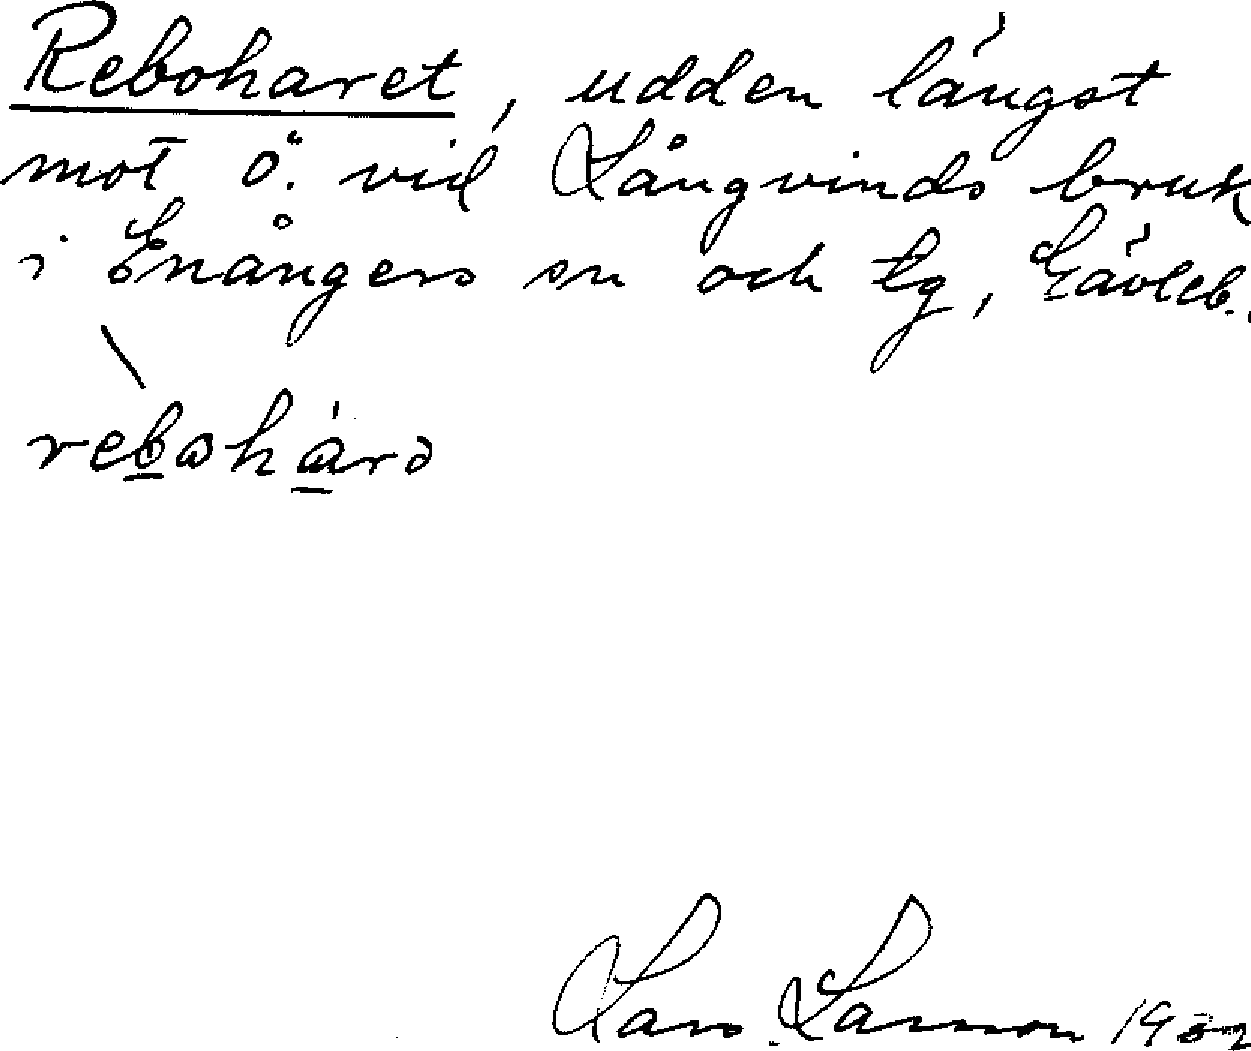 Reboharet, udden längst
mot Ö. vid Långvinds bruk
i Enångers sn och tg, Gävleb.
rebohárə
Lars Larsson 1932